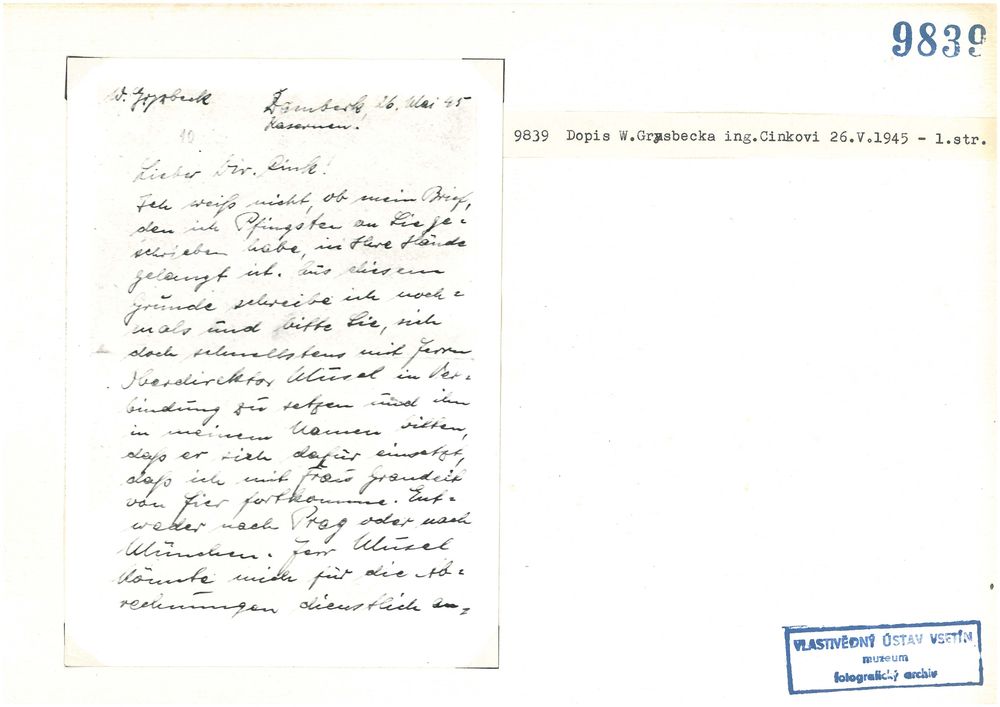 9839
W. Grysbeck
Žamberk, 26. Mai 45
Kasernen.
10
Lieber Dir. Cink!
Ich weiß nicht, ob mein Brief,
den ich Pfingsten an Sie ge=
schrieben habe, in Ihre Hände
gelangt ist. Aus diesem
Grunde schreibe ich noch=
mals und bitte Sie, sich
doch schnellstens mit Herrn
Oberdirektor Musel in Ver=
bindung zu setzen und ihn
in meinem Namen bitten,
daß er sich dafür einsetzt,
daß ich mit Frau Grandeit
von hier fortkomme. Ent=
weder nach Prag oder nach
München. Herr Musel
könnte mich für die Ab=
rechnungen dienstlich an=
9839 Dopis W.Grysbecka ing.Cinkovi 26.V.1945 - 1.str.
VLASTIVĚDNÝ ÚSTAV VSETÍN
muzeum
fotografický archiv